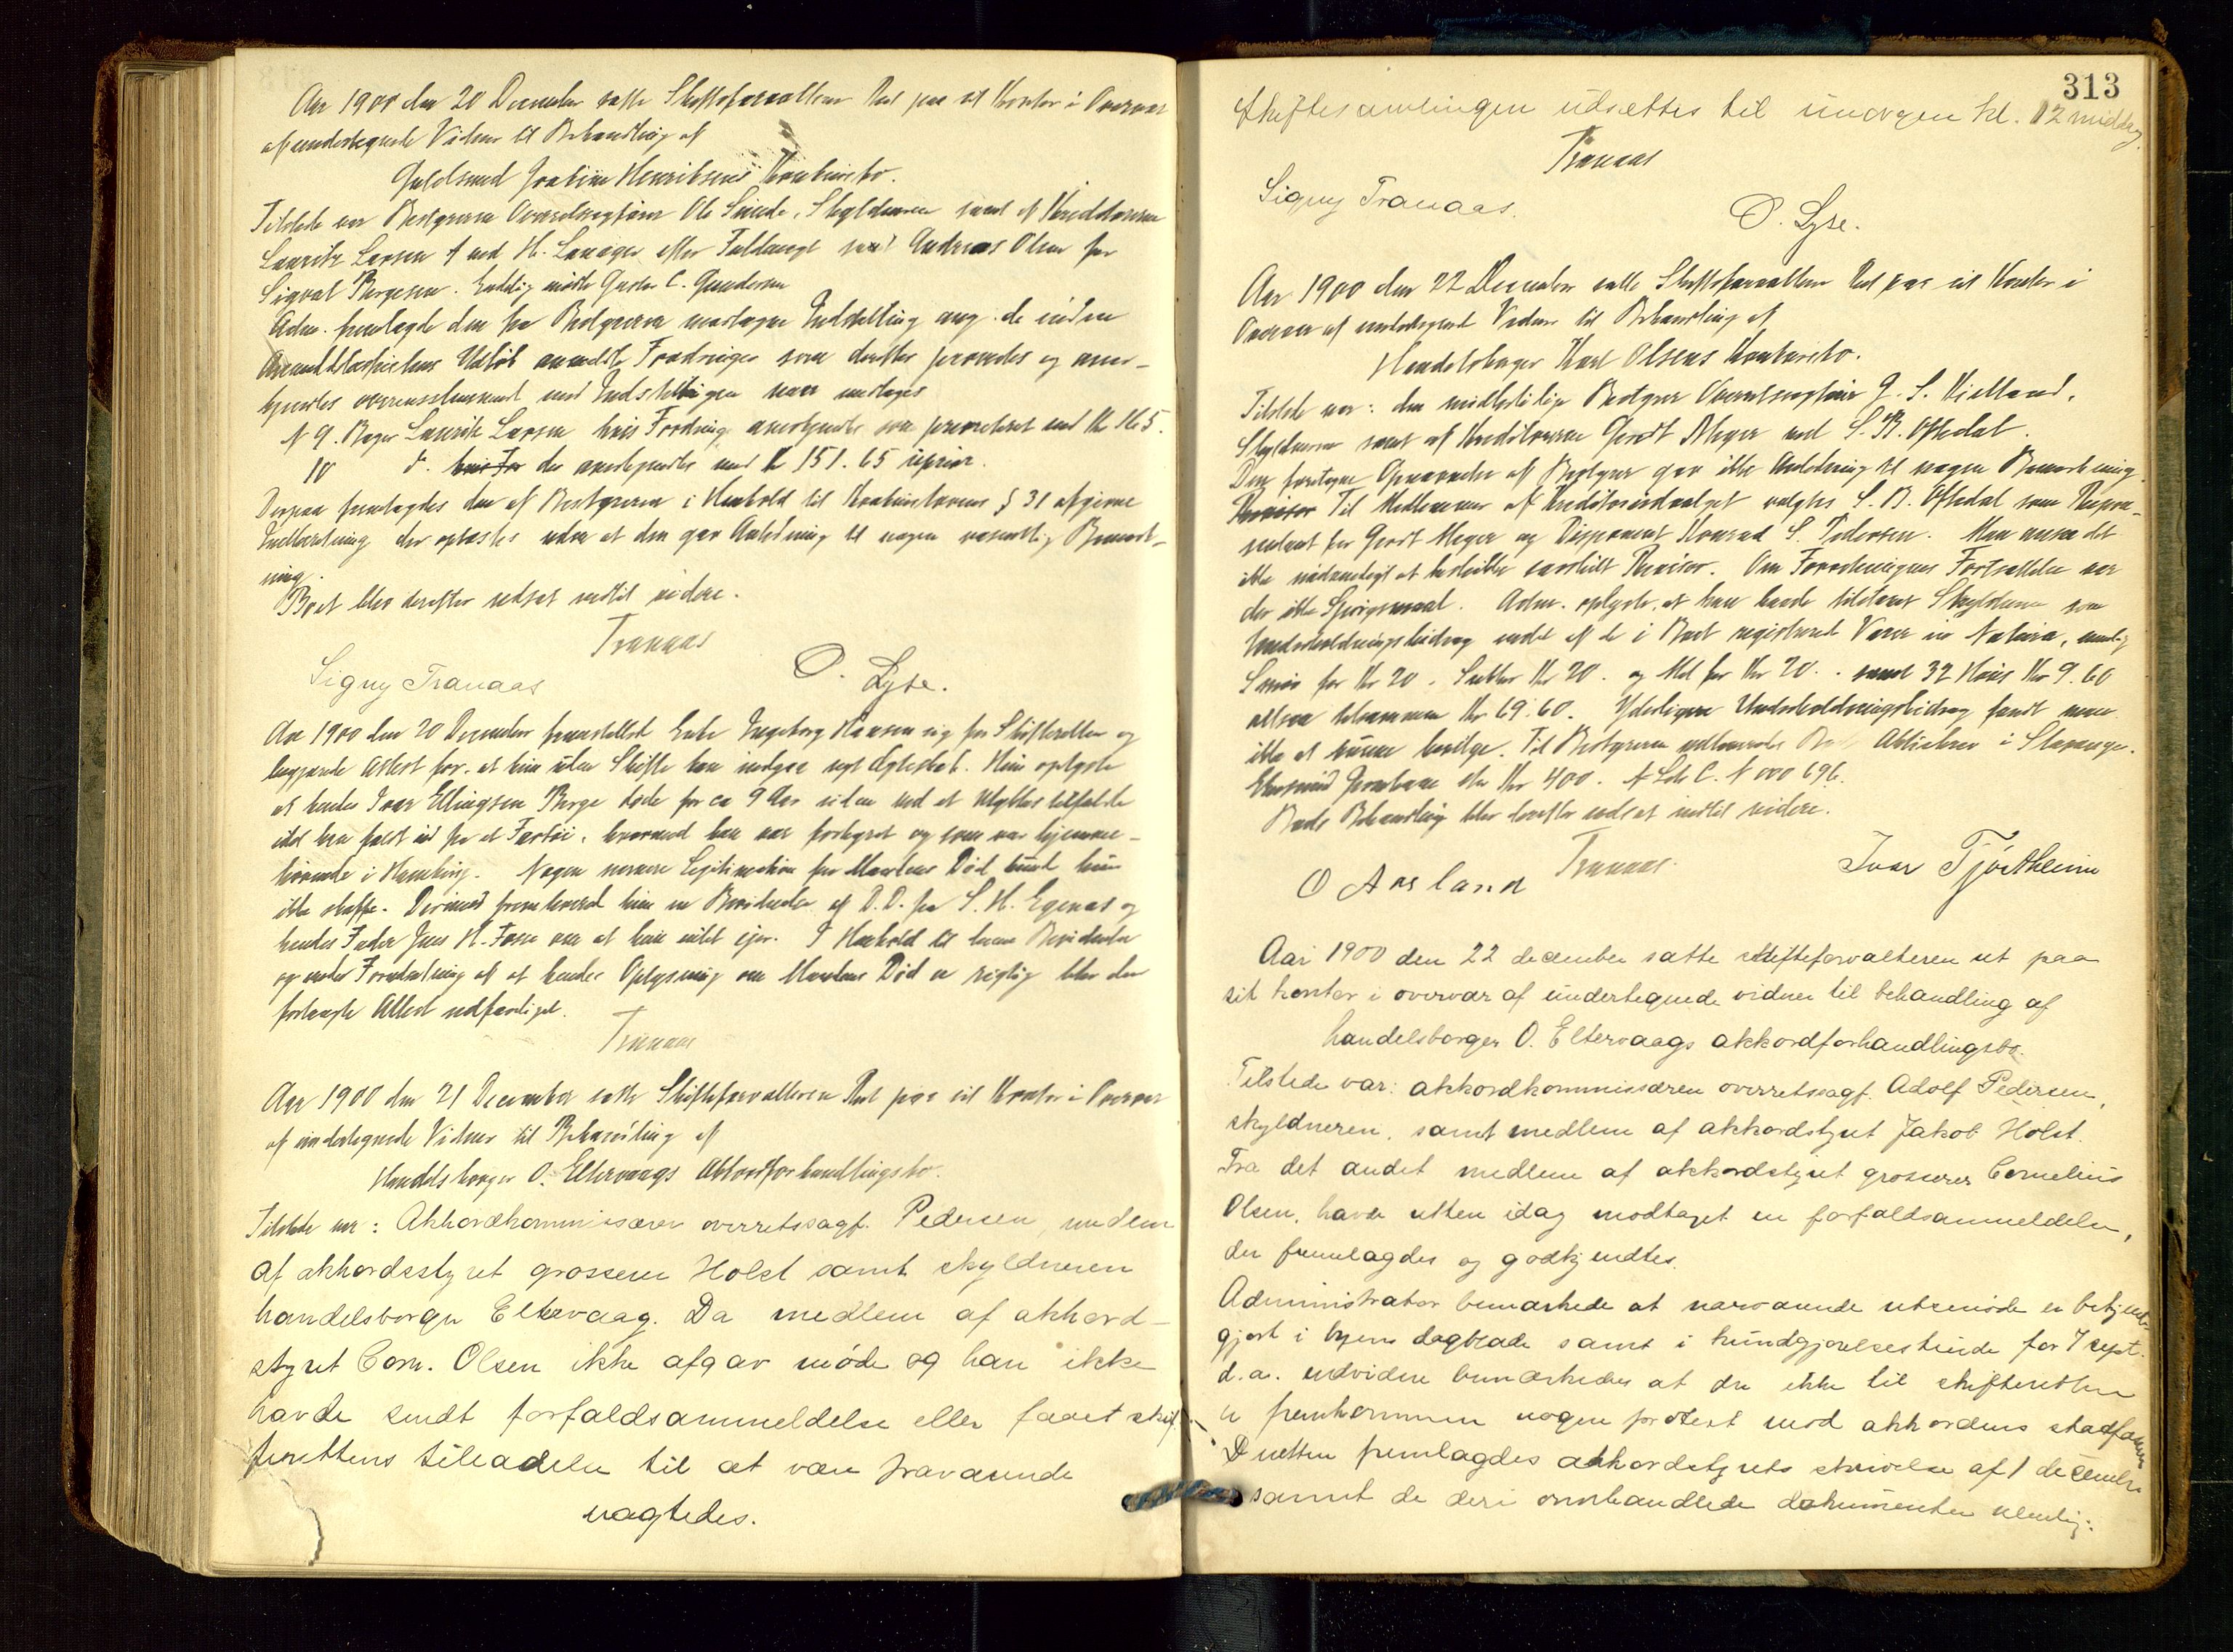 Aar 1900 den 20 December satte Skifteforvalteren Ret paa sit Kontor i Overvær
af undertegnede Vidner til Behandling af
Guldsmed Joakim Henriksens Konkursbo.
Tilstede var Bestyreren Overretssagfører Ole Smede, Skyldneren samt af Kreditorerne
Lauritz Larsen ved H. Lauager efter Fuldmagt samt Andreas Olsen for
Sigval Bergesen. Endelig mødte Gustav C. Gundersen
Adm. fremlagde den fra Bestyreren modtagne Indstilling ang. de inden
Anmeldelsesfristens Udløb anmeldte Fordringer som derefter prøvedes og aner-
kjendtes overensstemmende med Indstillingen
N 9. Bager Lauritz Larsen hvis Fordring anerkjendtes som prioriteret med Kr 165.
10 der anerkjendtes med Kr 151.65 uprior.
Derpaa fremlagdes den af Bestyreren i Henhold til Konkurslovens § 31 afgivne
Indberetning der oplæstes uden at den gav Anledning til nogen væsentlig Bemærk-
ning.
Boet blev derefter udsat indtil videre.
Tranaas
Signy Tranaas O. Lyse.
Aar 1900 den 20 December fremstillede Enke Ingeborg Hansen sig for Skifteretten og
begjærede Attest for, at hun uden Skifte kan indgaa nyt Ægteskab. Hun oplyste
at hendes Ivar Ellingsen Berge døde for ca 9 Aar siden ved et Ulykkestilfælde
idet han faldt ud fra et Fartøi, hvormed han var forhyret og som var hjemme-
hørende i Hamburg. Nogen nærmere Legitimation for Mandens Død kunde hun
ikke skaffe. Derimod fremleverede hun en Bevidnelse af D.D. fra S. H. Egenæs og
hendes Fader Jens H. Fosse om at hun intet ejer. I Henhold til denne Bevidnelse
og under Forudsætning af at hendes Oplysning om Mandens Død er rigtig blev den
forlangte Attest udfærdiget.
Tranaas
Aar 1900 den 21 December satte Skifteforvalteren Ret paa sit Kontor i Overvær
af undertegnede Vidner til Behandling af
Handelsborger O. Eltervaags Akkordforhandlingsbo.
Tilstede var: Akkordkommissæren overretssagf. Pedersen, medlem
af akkordsstyret grosserer Holst samt skyldneren
handelsborger Eltervaag. Da medlem af akkord-
styret Corn. Olsen ikke afgav møde og han ikke
havde sendt forfaldsanmeldelse eller faaet skif-
terettens tilladelse til at være fraværende
vagtedes.
313
Skiftesamlingen udsættes til imorgen kl. 12 middag.
Tranaas
Signy Tranaas. O. Lyse.
Aar 1900 den 22 December satte Skifteforvalteren Ret paa sit Kontor i
Overvær af undertegnede Vidner til Behandling af
Handelsborger Karl Olsens Konkursbo.
Tilstede var: den midlertidige Bestyrer Overretssagfører G. S. Kielland,
Skyldneren samt af Kreditorerne Gerdt Meyer ved S. B. Oftedal.
Den foretagne Opnævnelse af Bestyrer gav ikke Anledning til nogen Bemærkning.
Revisor Til Medlemmer af Kreditorudvalget valgtes S. B. Oftedal som Repræ-
sentant for Gerdt Meyer og Disponent Konrad S. Pedersen. Man ansaa det
ikke nødvendigt at beskikke særskilt Revisor. Om Forretningens Fortsættelse var
der ikke Spørgsmaal. Adm. oplyste, at han havde tilstaaet Skyldneren som
Underholdningsbidrag endel af de i Boet registrerede Varer in Natura, nemlig
Smør for Kr 20. Sukker Kr 20. og Mel for Kr 20. samt 32 Høns Kr 9.60
altsaa tilsammen Kr 69.60. Yderligere Underholdningsbidrag fandt man
ikke at kunne bevilge. Til Bestyreren udleveredes Aktiebrev i Stavanger-
Ekersund Jernbane stor Kr 400. Litr C. N 000696.
Boets Behandling blev derefter udsat indtil videre.
O Aasland Tranaas Ivar Tjøstheim
Aar 1900 den 22 december satte skifteforvalteren ret paa
sit kontor i overvær af undertegnede vidner til behandling af
handelsborger O. Eltervaags akkordforhandlingsbo.
Tilstede var: akkordkommissæren overretssagf. Adolf Pedersen,
skyldneren, samt medlem af akkordstyret Jakob Holst.
Fra det andet medlem af akkordstyret grosserer Cornelius
Olsen, havde retten idag modtaget en forfaldsanmeldelse,
der fremlagdes og godkjendtes.
Administrator bemærkede at nærværende retsmøde er bekjendt-
gjort i byens dagblade samt i kundgjørelsestidende for 7 sept.
d.a. endvidere bemærkedes at der ikke til skifteretten
er fremkommen nogen protest mod akkordens stadfæstelse
I retten fremlagdes akkordstyrets skrivelse af 1 december
samt de deri omhandlede dokumenter nemlig: